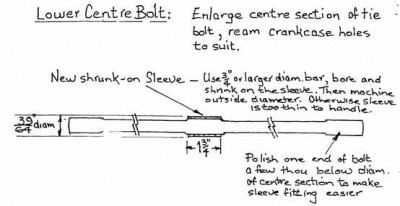 Lower Centre Bolt: Enlarge centre section of tie
bolt, ream crankcase holes
to suit.
New shrunk-on Sleeve – Use 3/4" or larger diam. bar, bore and
shrink on the sleeve. Then machine
outside diameter. Otherwise sleeve
is too thin to handle.
39/64" diam
1 3/4"
Polish one end of bolt
a few thou below diam.
of centre section to make
sleeve fitting easier